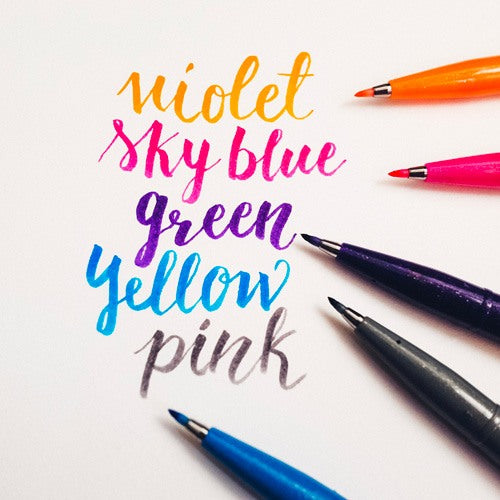 violet
sky blue
green
yellow
pink